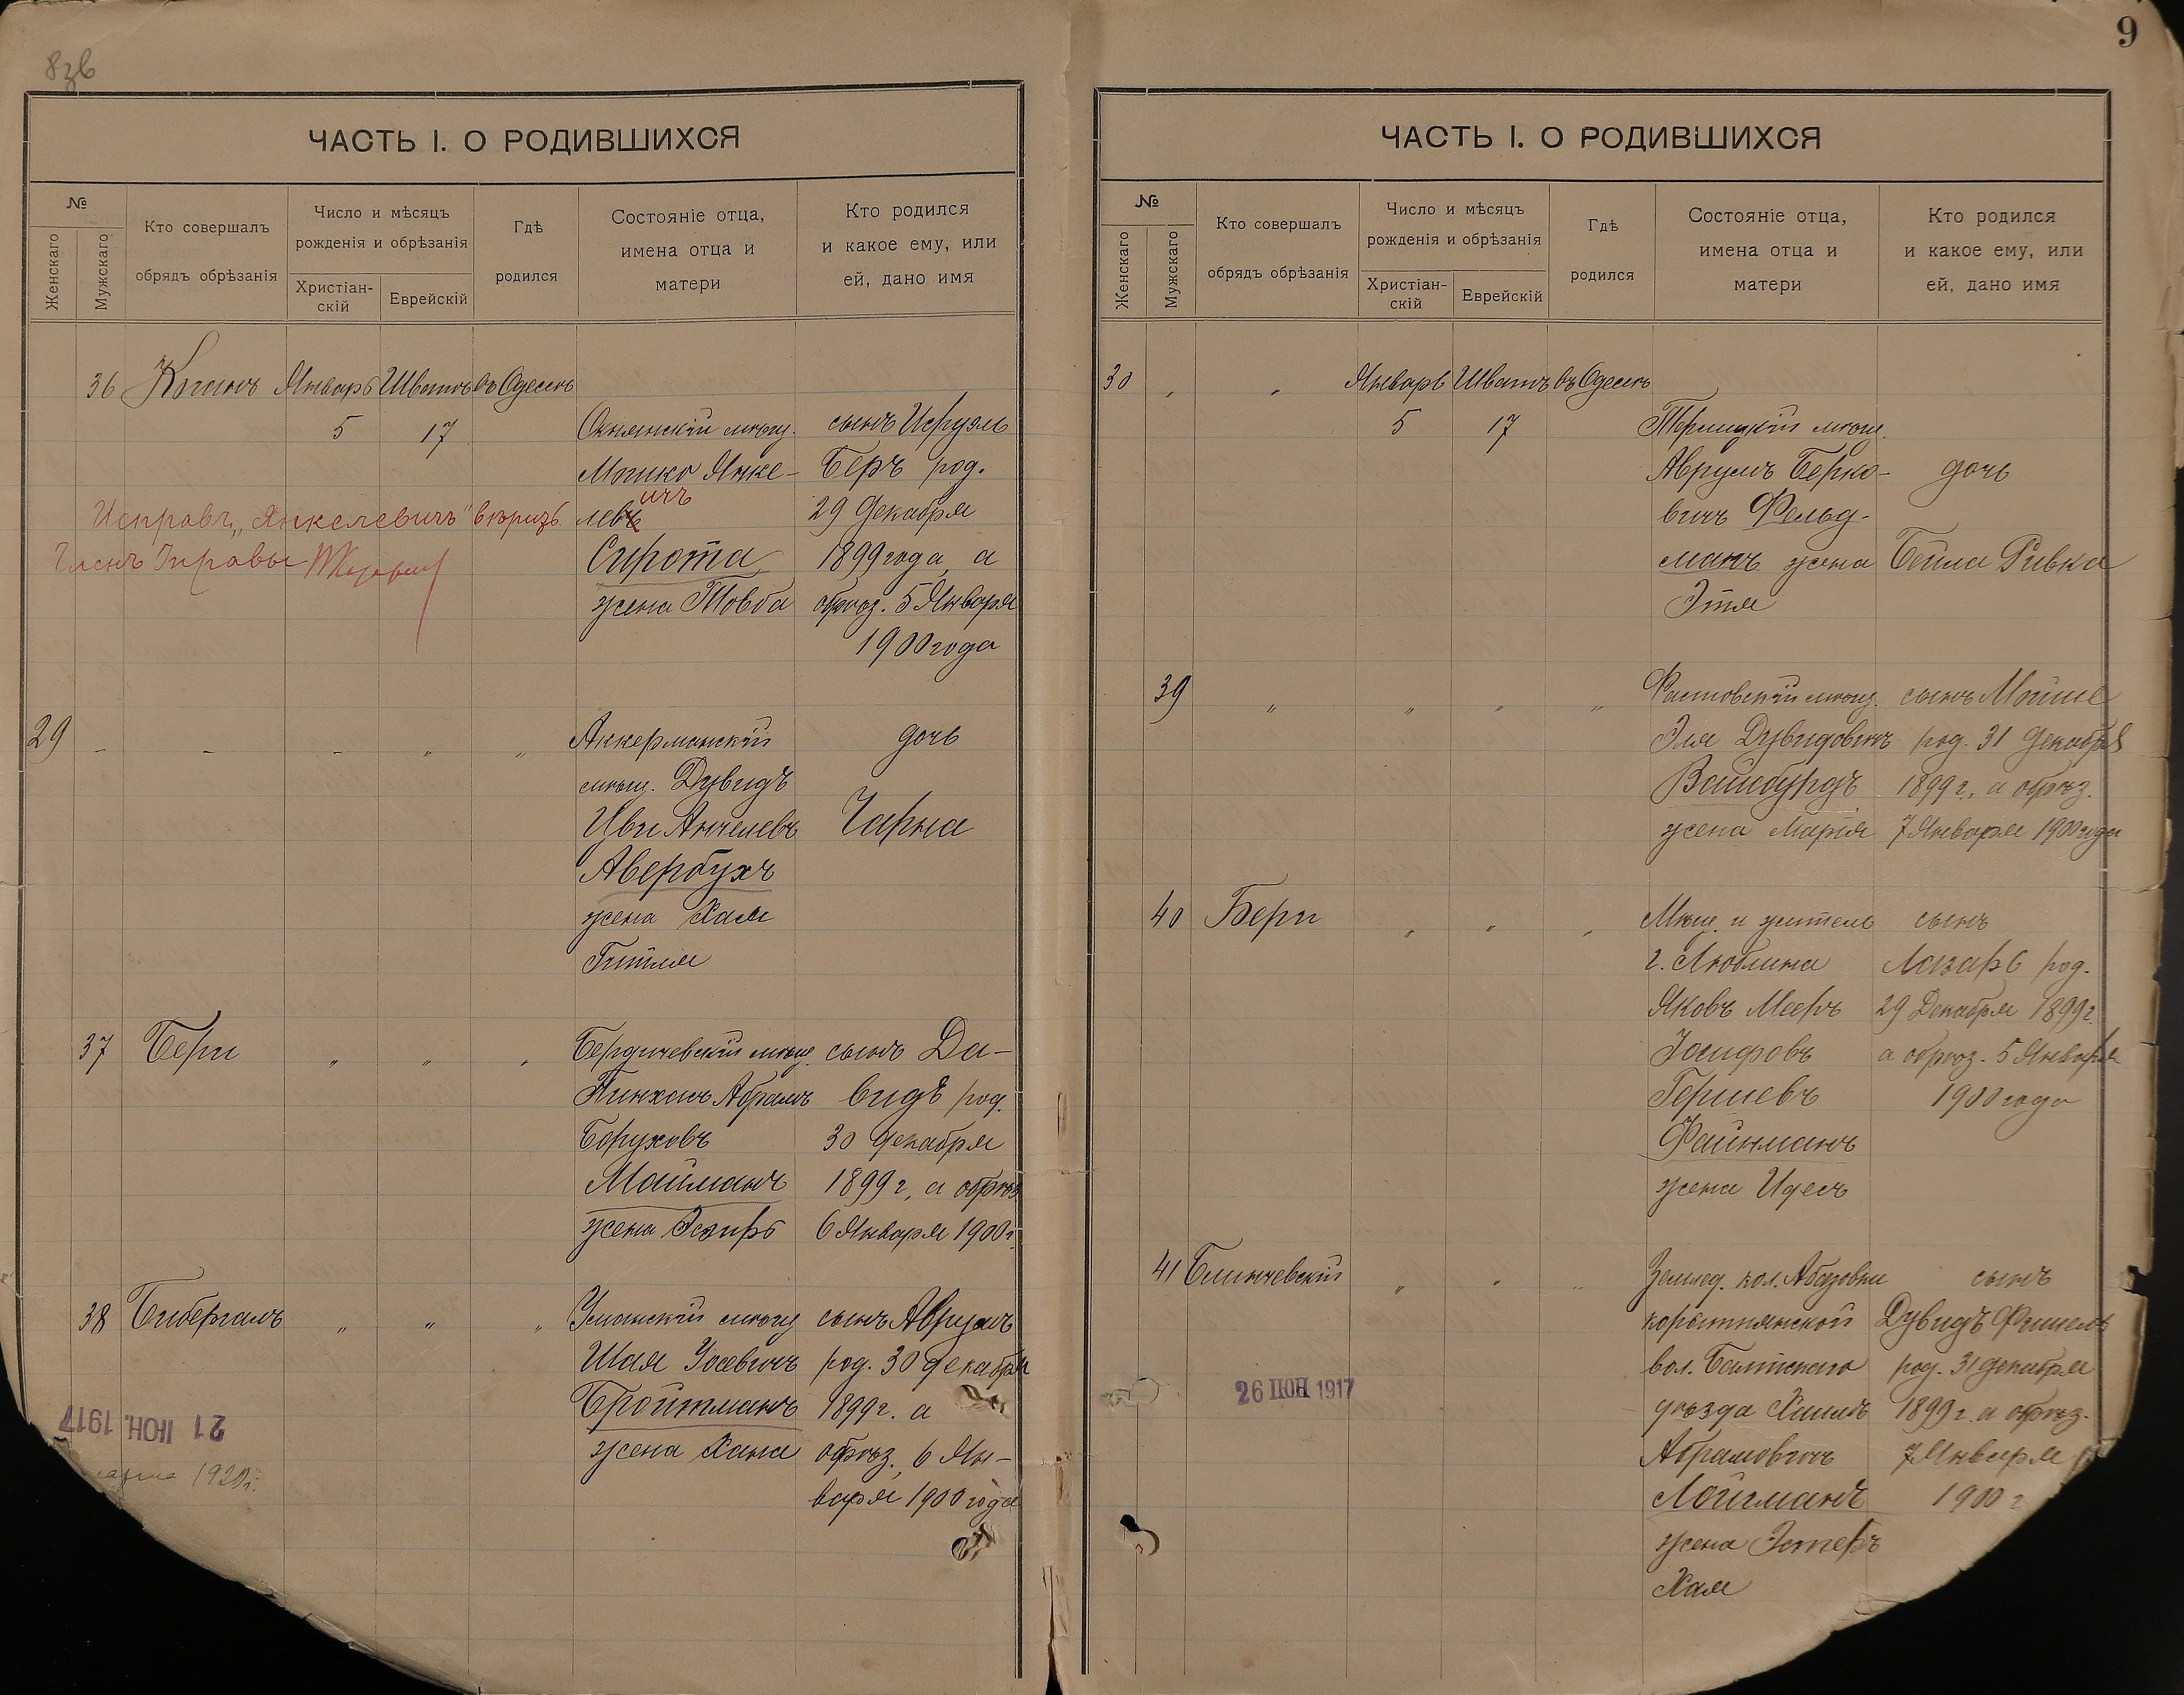 9
ЧАСТЬ I. О РОДИВШИХСЯ
№
Женскаго
Мужскаго
Кто совершалъ
обрядъ обрѣзанія
Число и мѣсяцъ
рожденія и обрѣзанія
Христіан-
скій
Еврейскій
Гдѣ
родился
Состояніе отца,
имена отца и
матери
Кто родился
и какое ему, или
ей, дано имя
36 Коганъ Январь Шватъ въ Одессѣ
5 17 Окнянскій мѣщ. сынъ Исруэль
Мошко Янке- Беръ род.
левъ ичъ 29 Декабря
Исправ. „Янкелевичъ" вѣрить
Сирота 1899 года, а
Членъ Управы
жена Товба обрѣз. 5 Января
1900 года
29 Аккерманскій дочь
мѣщ. Дувидъ
Цви Анчелевъ Чарна
Авербухъ
жена Хая
Гитля
37 Бери „ „ „ Бердичевскій мѣщ. сынъ Да-
Пинхасъ Абрамъ видъ род.
Боруховъ 30 Декабря
Мойманъ 1899 г, а обрѣз
жена Эсѳирь 6 Января 1900 г.
38 Бибергалъ „ „ „ Уманскій мѣщ сынъ Аврумъ
Шая Іосевичъ род. 30 декабря
Бройтманъ 1899 г. а
жена Хана обрѣз. 6 Ян-
варя 1900 года
21 ІЮН. 1917
1920 г.
ЧАСТЬ I. О РОДИВШИХСЯ
№
Женскаго
Мужскаго
Кто совершалъ
обрядъ обрѣзанія
Число и мѣсяцъ
рожденія и обрѣзанія
Христіан-
скій
Еврейскій
Гдѣ
родился
Состояніе отца,
имена отца и
матери
Кто родился
и какое ему, или
ей, дано имя
30 „ „ Январь Шватъ въ Одессѣ
5 17 мѣщ.
Аврумъ Берко- дочь
вичъ Фельд-
манъ жена Бейла Ривка
Этя
39 „ „ „ „ Фастовскій мѣщ. сынъ Мойше
Эля Дувидовичъ род. 31 Декабря
Вайсбурдъ 1899 г., а обрѣз.
жена Марія 7 Января 1900 года
40 Бери „ „ „ Мѣщ. и житель сынъ
г. Люблина Лазарь род.
Яковъ Мееръ 29 Декабря 1899 г.
Іосифовъ а обрѣз. 5 Января
Гершевъ 1900 года
Файнманъ
жена Идесъ
41 Блинчевскій „ „ „ Землед. кол. Абазовки сынъ
Дувидъ Фишель
вол. Балтскаго род. 31 декабря
уѣзда Хаимъ 1899 г. а обрѣз.
Абрамовичъ 7 Января
Лойгманъ 1900 г
жена Эстеръ
Хая
26 ІЮН 1917